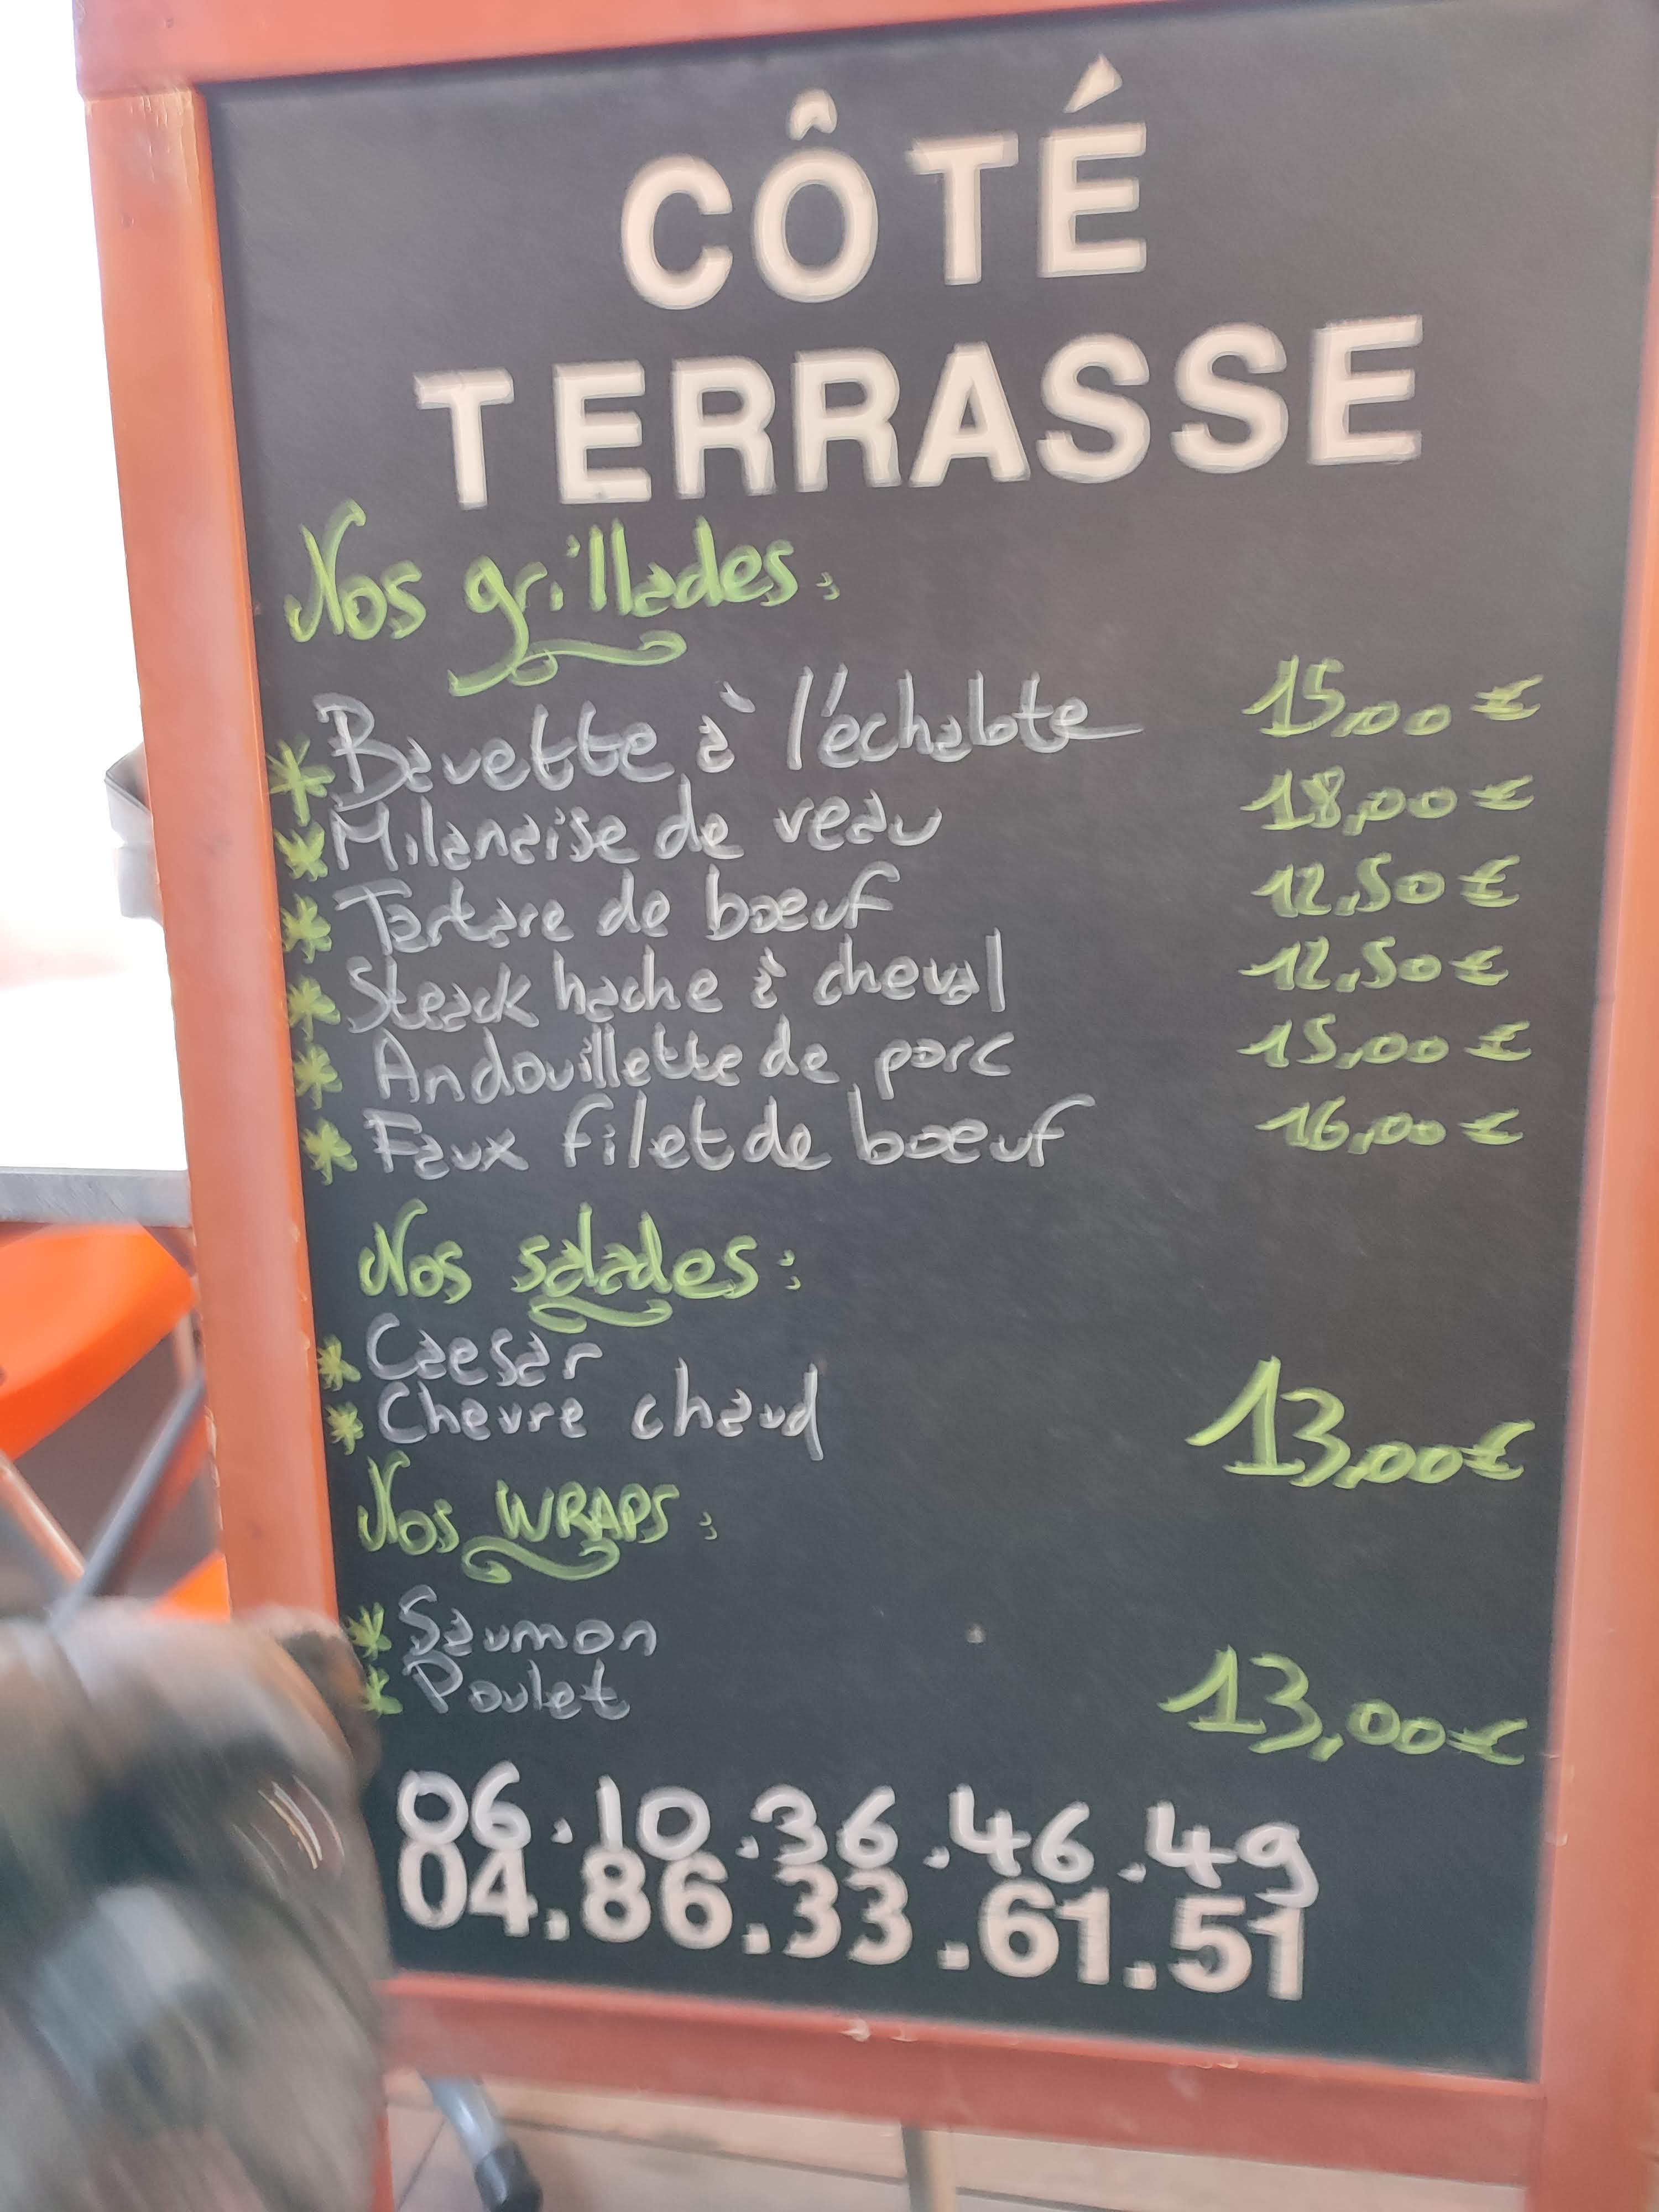 CÔTÉ
TERRASSE
Nos grillades:
* Bavette à l'échalote 15,00€
* Milanaise de veau 18,00€
* Tartare de bœuf 12,50€
* Steack hache à cheval 12,50€
* Andouillette de porc 15,00€
* Faux filet de bœuf 16,00€
Nos salades:
* Caesar
* Chevre chaud 13,00€
Nos WRAPS:
* Saumon
* Poulet 13,00€
06.10.36.46.49
04.86.33.61.51